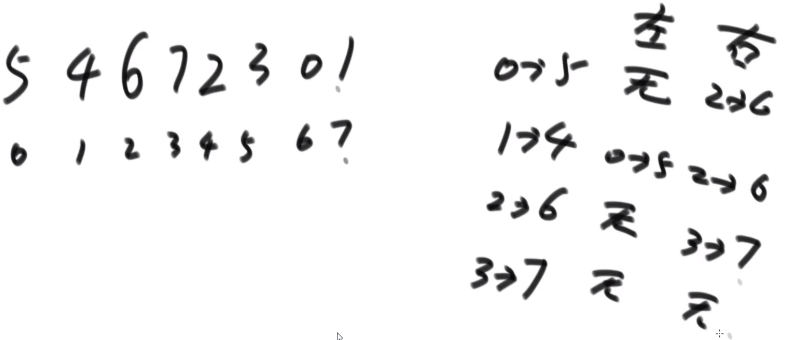 5 4 6 7 2 3 0 1
0 1 2 3 4 5 6 7
左 右
0→5 无 2→6
1→4 0→5 2→6
2→6 无 3→7
3→7 无 无